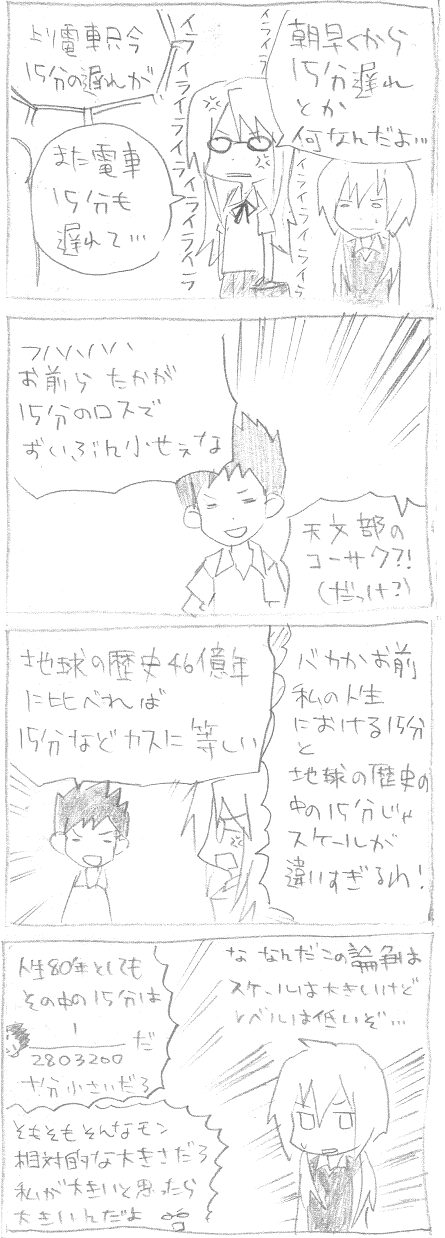 朝早くから
15分遅れ
とか
何なんだよ…
イライライライライライライライラ
上り電車只今
15分の遅れが
また電車
15分も
遅れて…
フハハハハ
お前ら たかが
15分のロスで
ずいぶん小せぇな
天文部の
コーサク?!
(だっけ?)
バカかお前
私の人生
における15分
と
地球の歴史の
中の15分じゃ
スケールが
違いすぎるわ!
地球の歴史46億年
に比べれば
15分などカスに等しい
な なんだこの論争は
スケールは大きいけど
レベルは低いぞ…
人生80年としても
その中の15分は
1
2803200
だ
十分小さいだろ
そもそもそんなモン
相対的な大きさだろ
私が大きいと思ったら
大きいんだよ